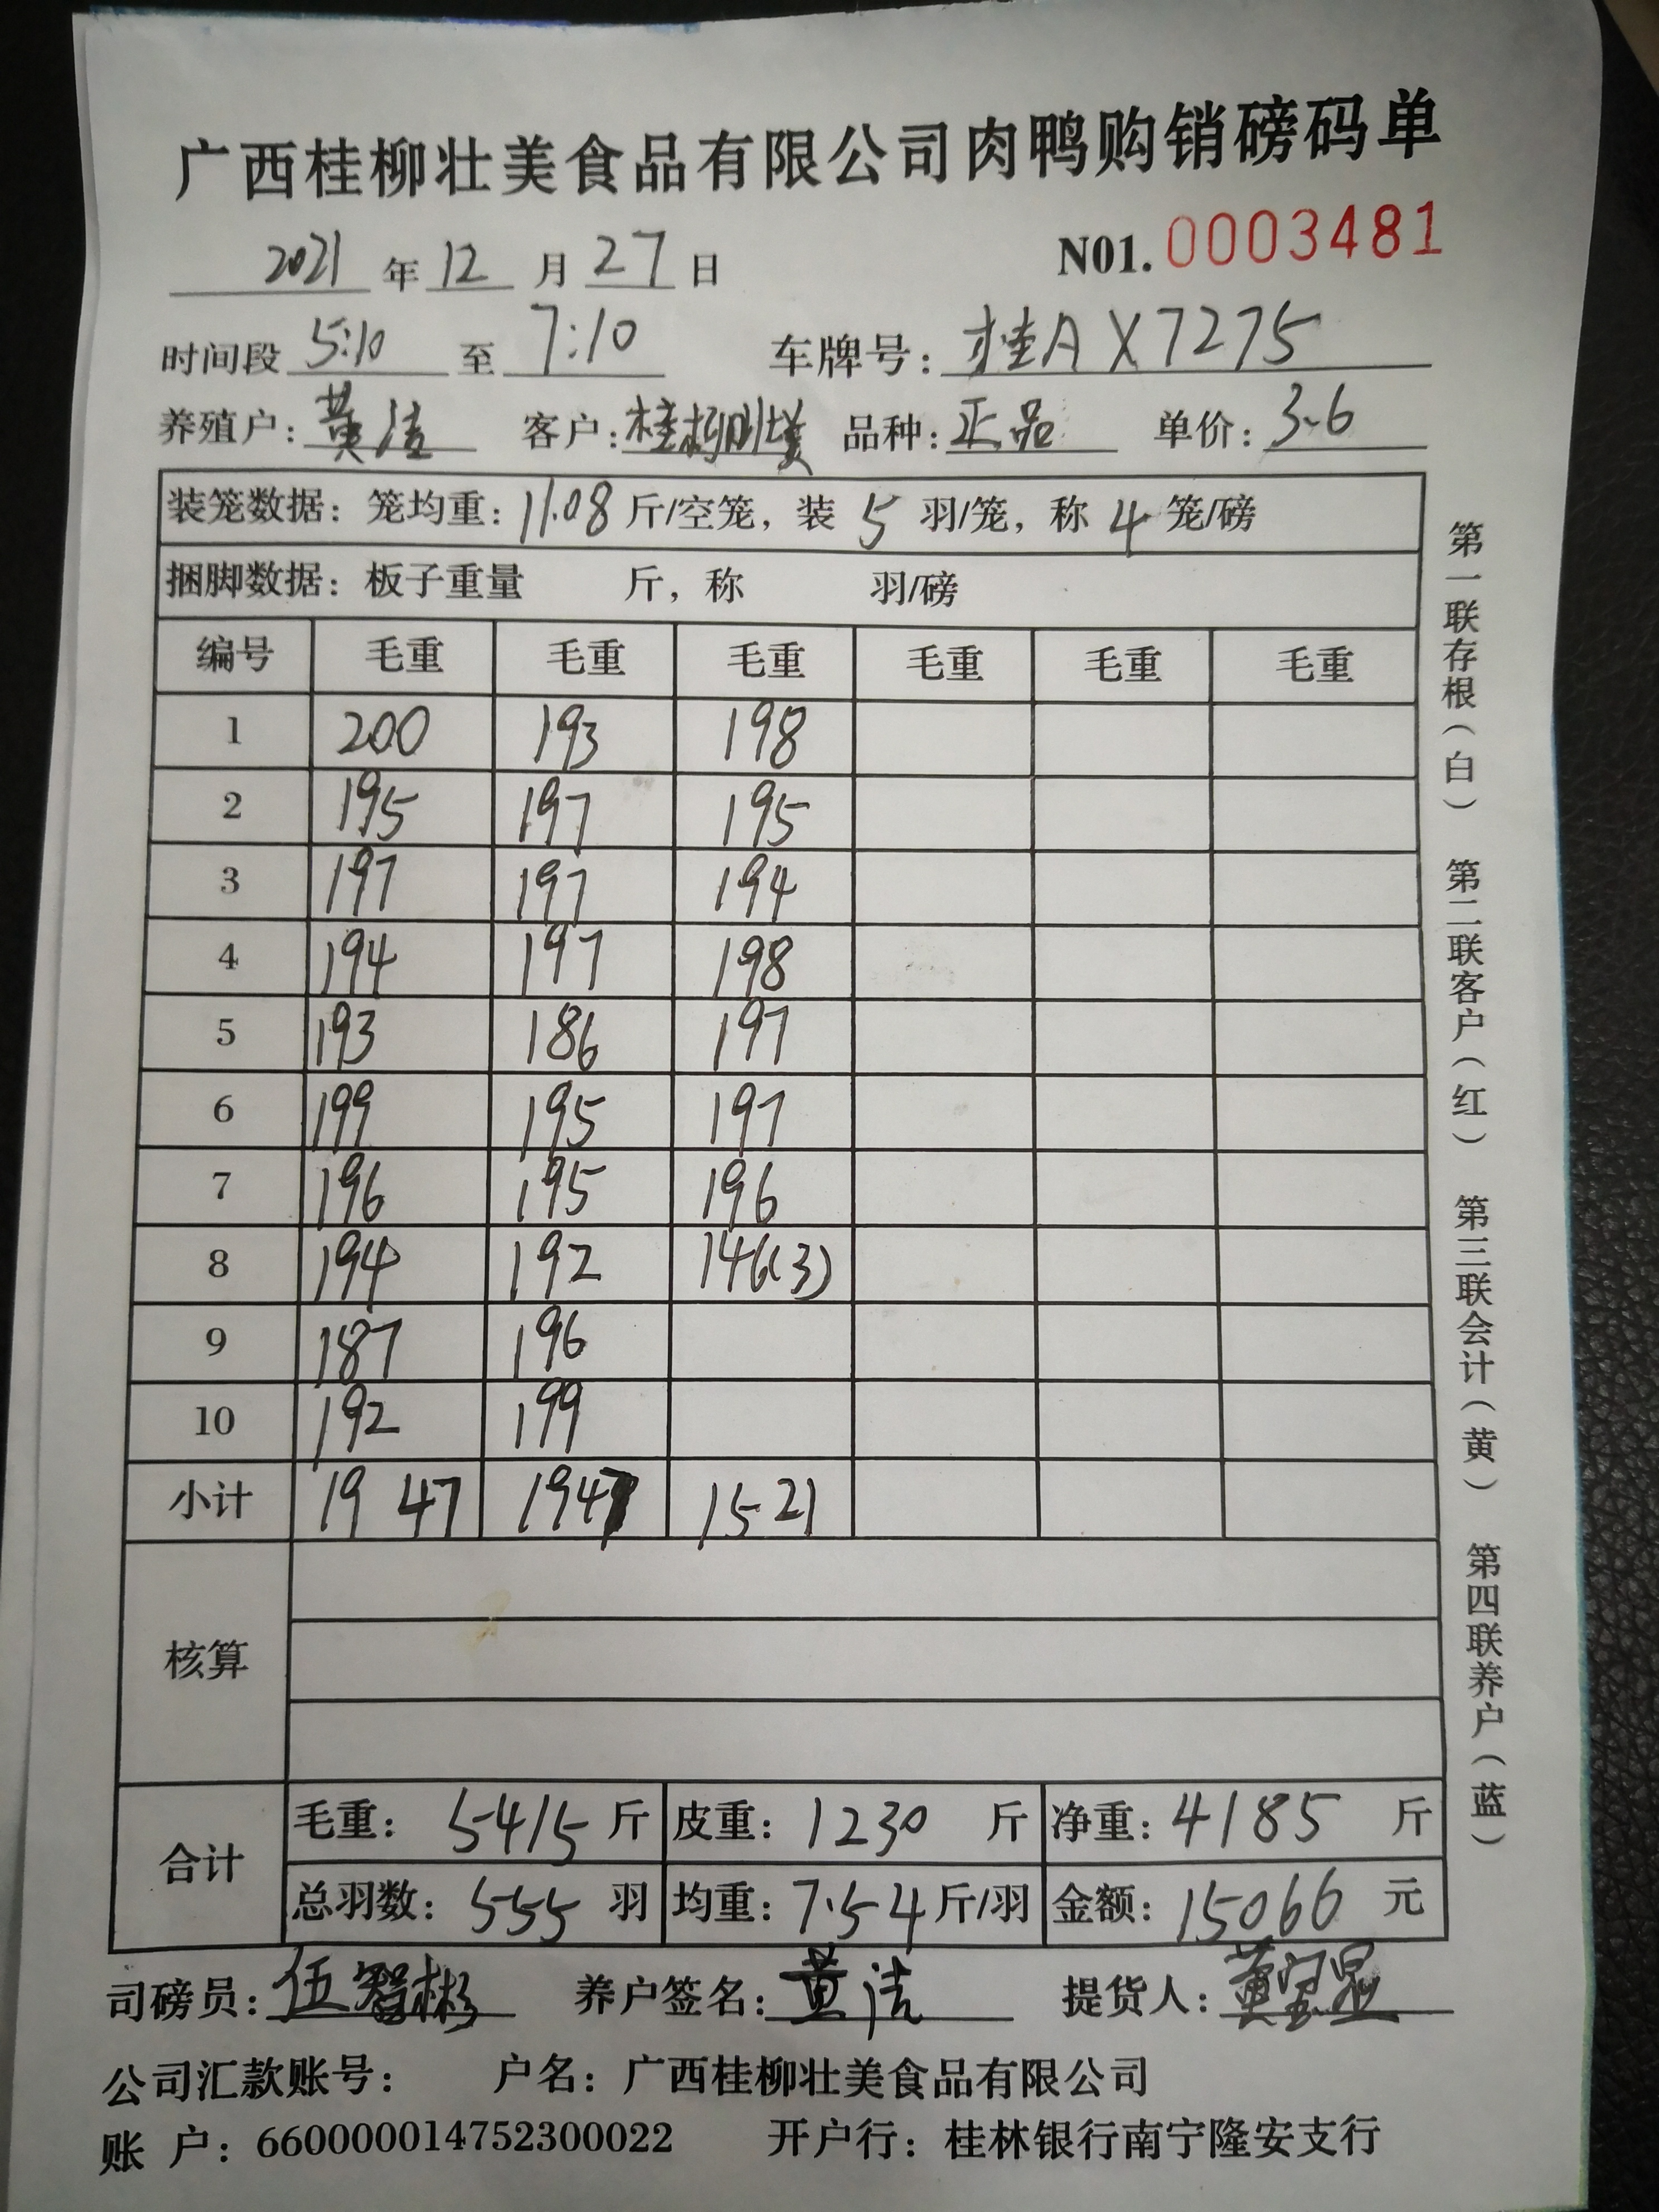 广西桂柳壮美食品有限公司肉鸭购销磅码单
2021 年 12 月 27 日 N01. 0003481
时间段 5:10 至 7:10 车牌号: 桂A X7275
养殖户: 黄洁 客户: 桂柳壮美 品种: 正品 单价: 3.6
装笼数据: 笼均重: 11.08 斤/空笼, 装 5 羽/笼, 称 4 笼/磅
捆脚数据: 板子重量 斤, 称 羽/磅
编号 毛重 毛重 毛重 毛重 毛重 毛重
1 200 193 198
2 195 197 195
3 197 197 194
4 194 197 198
5 193 186 197
6 199 195 197
7 196 195 196
8 194 192 146(3)
9 187 196
10 192 199
小计 1947 1947 1521
核算
合计
毛重: 5415 斤 皮重: 1230 斤 净重: 4185 斤
总羽数: 555 羽 均重: 7.54 斤/羽 金额: 15066 元
司磅员: 伍智彬 养户签名: 黄洁 提货人: 黄
公司汇款账号: 户名: 广西桂柳壮美食品有限公司
账 户: 660000014752300022 开户行: 桂林银行南宁隆安支行
第一联存根(白) 第二联客户(红) 第三联会计(黄) 第四联养户(蓝)